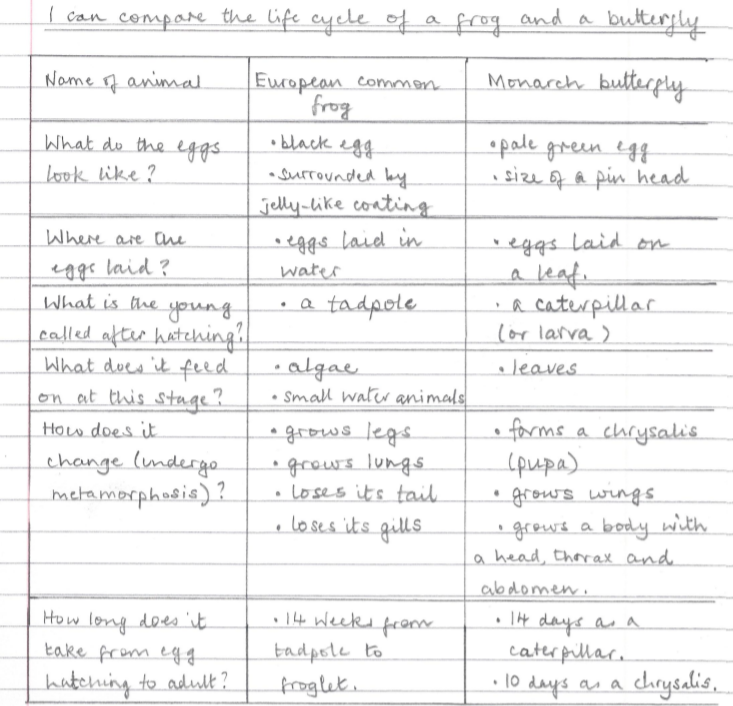 I can compare the life cycle of a frog and a butterfly
Name of animal
European common
frog
Monarch butterfly
What do the eggs
look like?
• black egg
• surrounded by
jelly-like coating
• pale green egg
• size of a pin head
Where are the
eggs laid?
• eggs laid in
water
• eggs laid on
a leaf.
What is the young
called after hatching?
• a tadpole
• a caterpillar
(or larva)
What does it feed
on at this stage?
• algae
• small water animals
• leaves
How does it
change (undergo
metamorphosis)?
• grows legs
• grows lungs
• loses its tail
• loses its gills
• forms a chrysalis
(pupa)
• grows wings
• grows a body with
a head, thorax and
abdomen.
How long does it
take from egg
hatching to adult?
• 14 weeks from
tadpole to
froglet.
• 14 days as a
caterpillar.
• 10 days as a chrysalis.